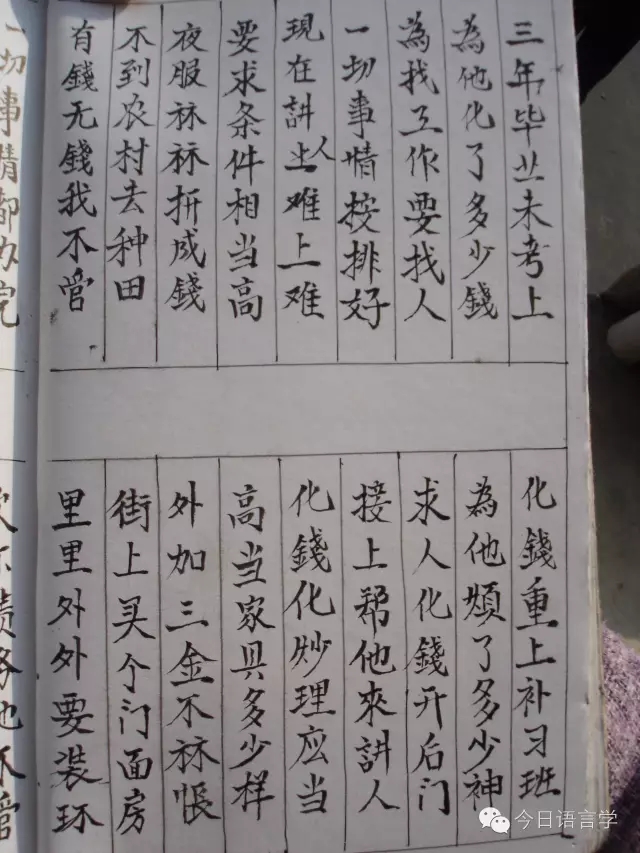 三年毕业未考上
化錢重上补习班
為他化了多少錢
為他煩了多少神
為找工作要找人
求人化錢开后门
一切事情按排好
接上帮他來訲人
現在訲人难上难
化錢化炒理应当
要求条件相当高
高当家具多少样
夜服祘祘折成錢
外加三金不祘悵
不到农村去种田
街上买个门面房
有錢无錢我不管
里里外外要装环
一切事情都办完
今日语言学